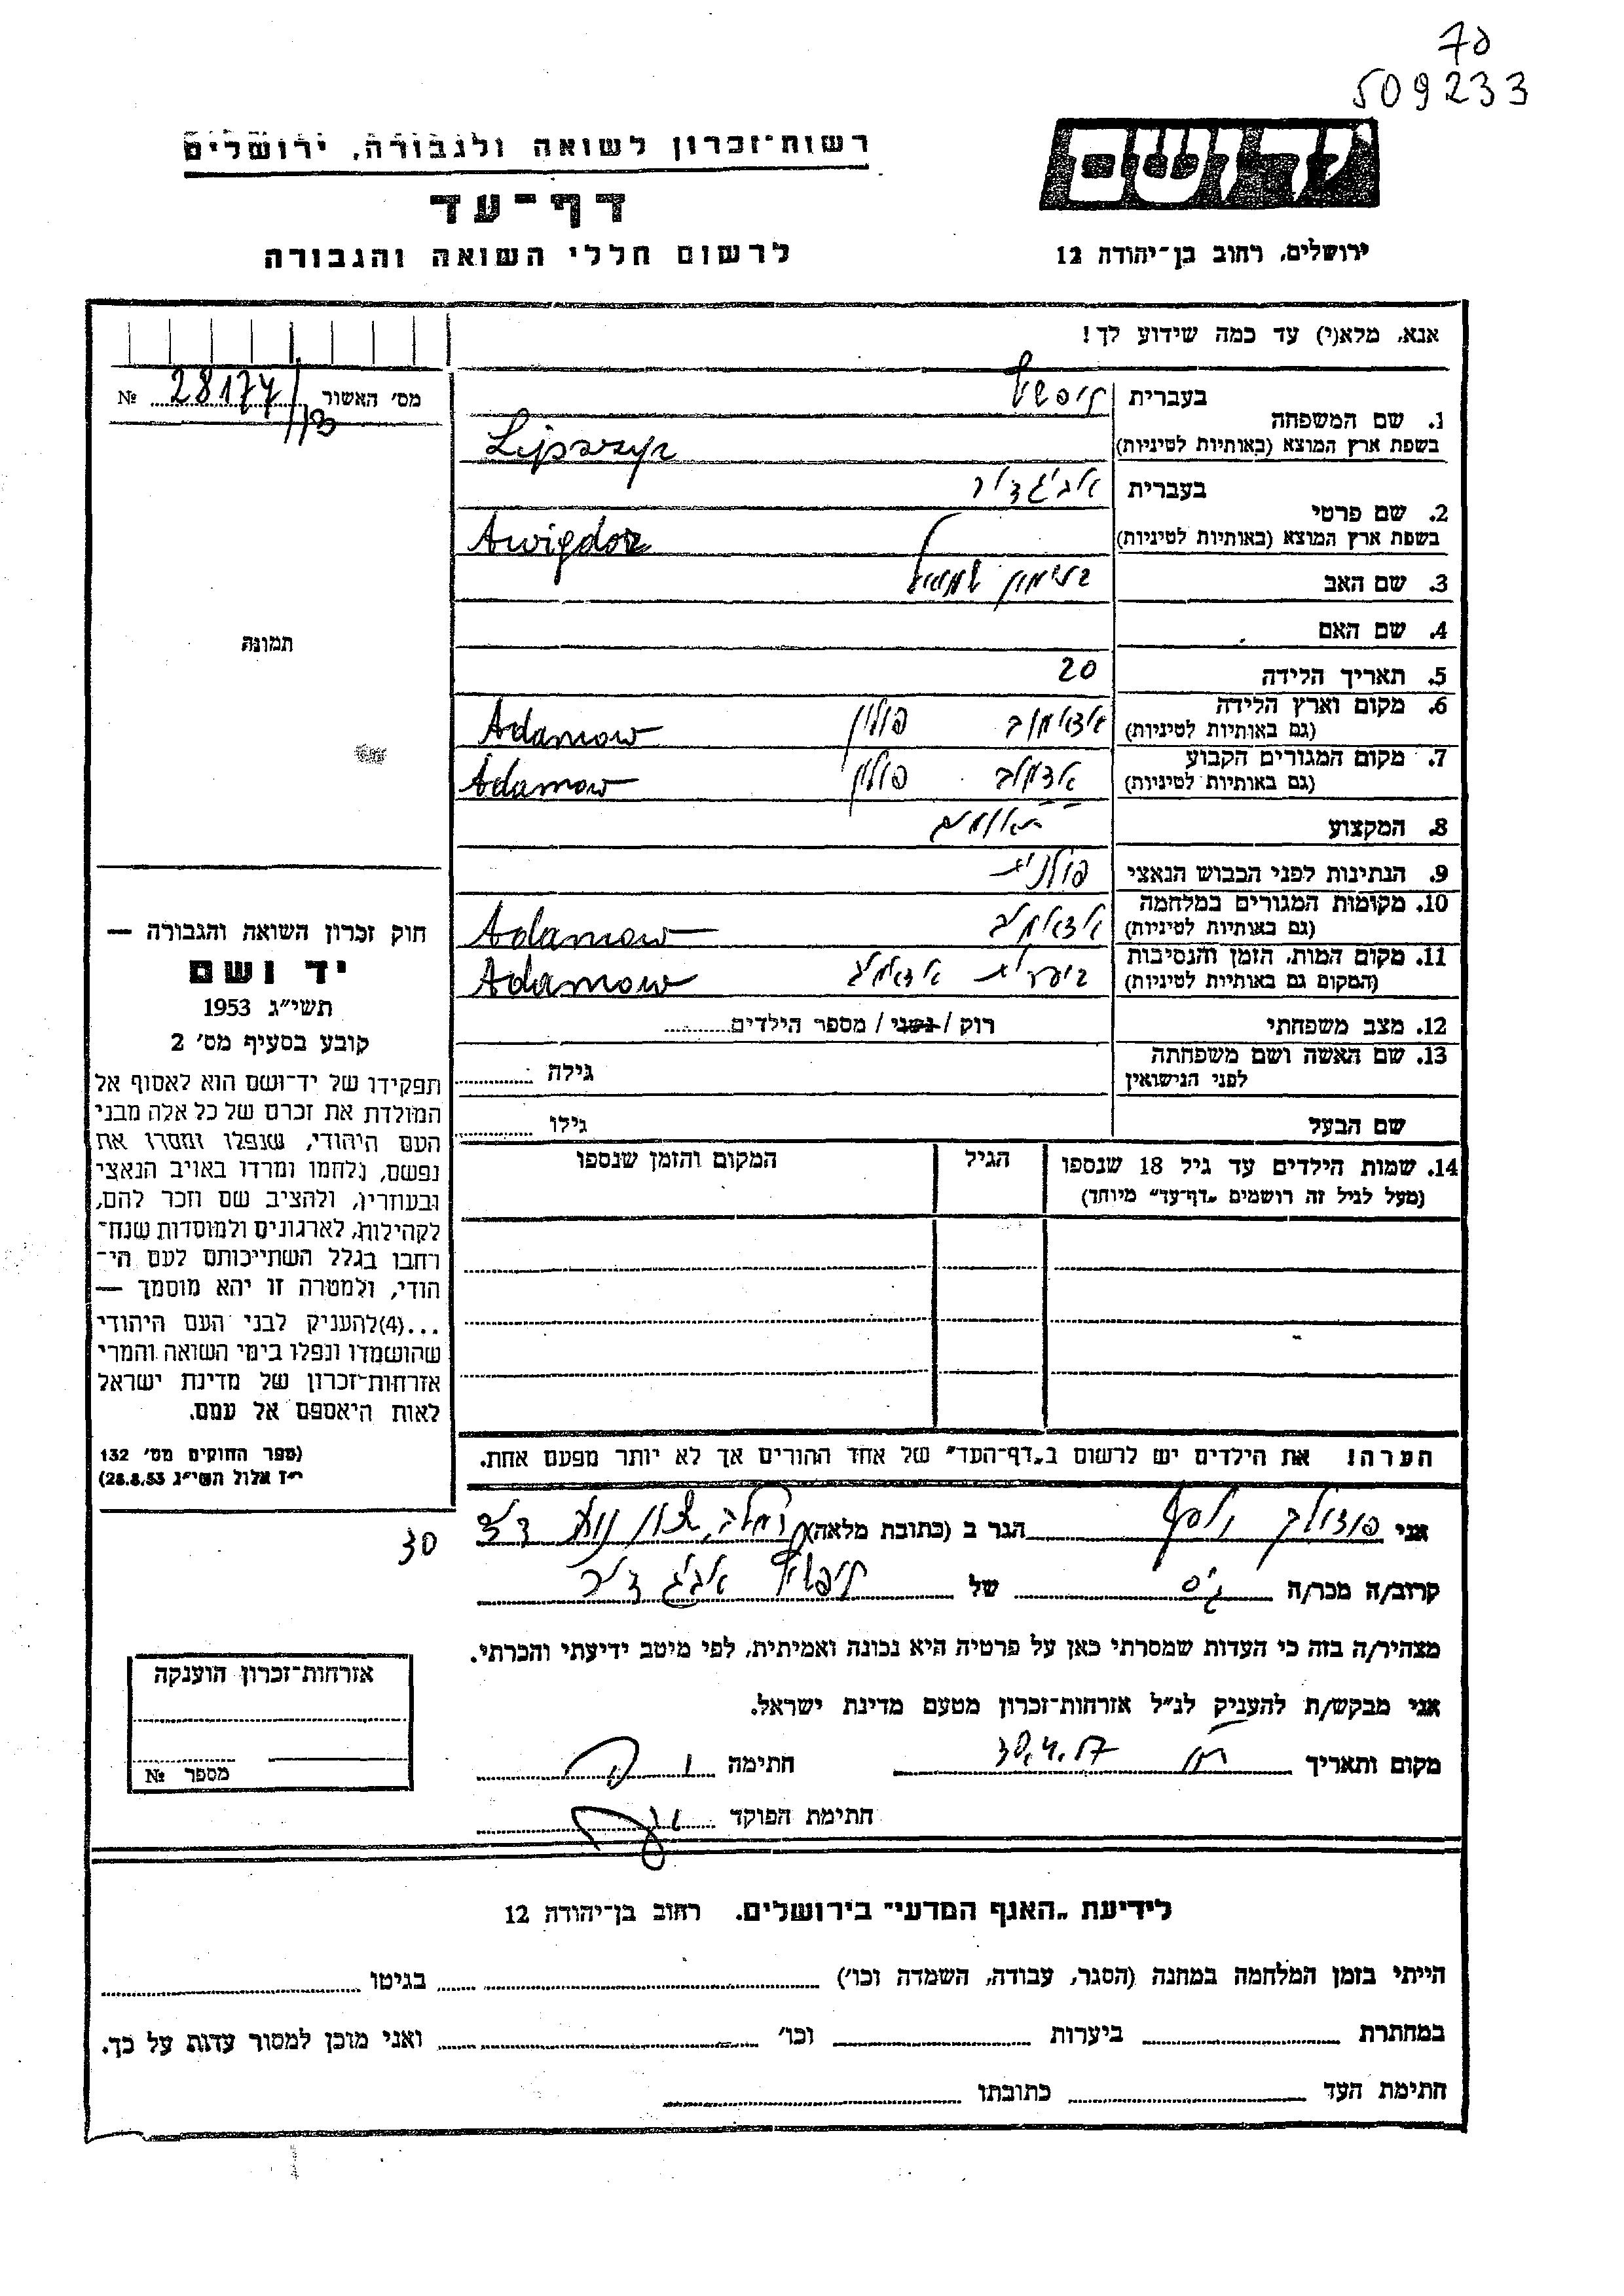 70
509233
יד ושם
רשות־זכרון לשואה ולגבורה, ירושלים
דף־עד
לרשום חללי השואה והגבורה
ירושלים, רחוב בן־יהודה 12
אנא, מלא(י) עד כמה שידוע לך!
מס׳ האשור 28177/ №
1. שם המשפחה
בעברית
בשפת ארץ המוצא (באותיות לטיניות)
2. שם פרטי
בעברית אביגדור
בשפת ארץ המוצא (באותיות לטיניות) Awigdor
3. שם האב
4. שם האם
5. תאריך הלידה 20
6. מקום וארץ הלידה אדאמוב פולין Adamow
(גם באותיות לטיניות)
7. מקום המגורים הקבוע אדמוב פולין Adamow
(גם באותיות לטיניות)
8. המקצוע
9. הנתינות לפני הכבוש הנאצי פולנית
10. מקומות המגורים במלחמה אדאמוב Adamow
(גם באותיות לטיניות)
11. מקום המות, הזמן והנסיבות ביערות אדאמוב Adamow
(המקום גם באותיות לטיניות)
12. מצב משפחתי רוק / נשוי / מספר הילדים
13. שם האשה ושם משפחתה
לפני הנישואין
גילה
שם הבעל גילו
14. שמות הילדים עד גיל 18 שנספו
(מעל לגיל זה רושמים „דף־עד״ מיוחד)
הגיל
המקום והזמן שנספו
הערה! את הילדים יש לרשום ב„דף־העד״ של אחד ההורים אך לא יותר מפעם אחת.
תמונה
חוק זכרון השואה והגבורה —
יד ושם
תשי״ג 1953
קובע בסעיף מס׳ 2
תפקידו של יד־ושם הוא לאסוף אל
המולדת את זכרם של כל אלה מבני
העם היהודי, שנפלו ומסרו את
נפשם, נלחמו ומרדו באויב הנאצי
ובעוזריו, ולהציב שם וזכר להם,
לקהילות, לארגונים ולמוסדות שנח־
רחבו בגלל השתייכותם לעם הי־
הודי, ולמטרה זו יהא מוסמך —
...(4)להעניק לבני העם היהודי
שהושמדו ונפלו בימי השואה והמרי
אזרחות־זכרון של מדינת ישראל
לאות היאספם אל עמם.
(ספר החוקים מס׳ 132
י״ז אלול תשי״ג 28.8.53)
30
אני יוסף הגר ב (כתובת מלאה)
קרוב/ה מכר/ה גיס של אביגדור
מצהיר/ה בזה כי העדות שמסרתי כאן על פרטיה היא נכונה ואמיתית, לפי מיטב ידיעתי והכרתי.
אני מבקש/ת להעניק לנ״ל אזרחות־זכרון מטעם מדינת ישראל.
מקום ותאריך חתימה
חתימת הפוקד
אזרחות־זכרון הוענקה
מספר №
לידיעת „האגף המדעי״ בירושלים. רחוב בן־יהודה 12
הייתי בזמן המלחמה במחנה (הסגר, עבודה, השמדה וכו׳) בגיטו
במחתרת ביערות וכו׳ ואני מוכן למסור עדות על כך.
חתימת העד כתובתו